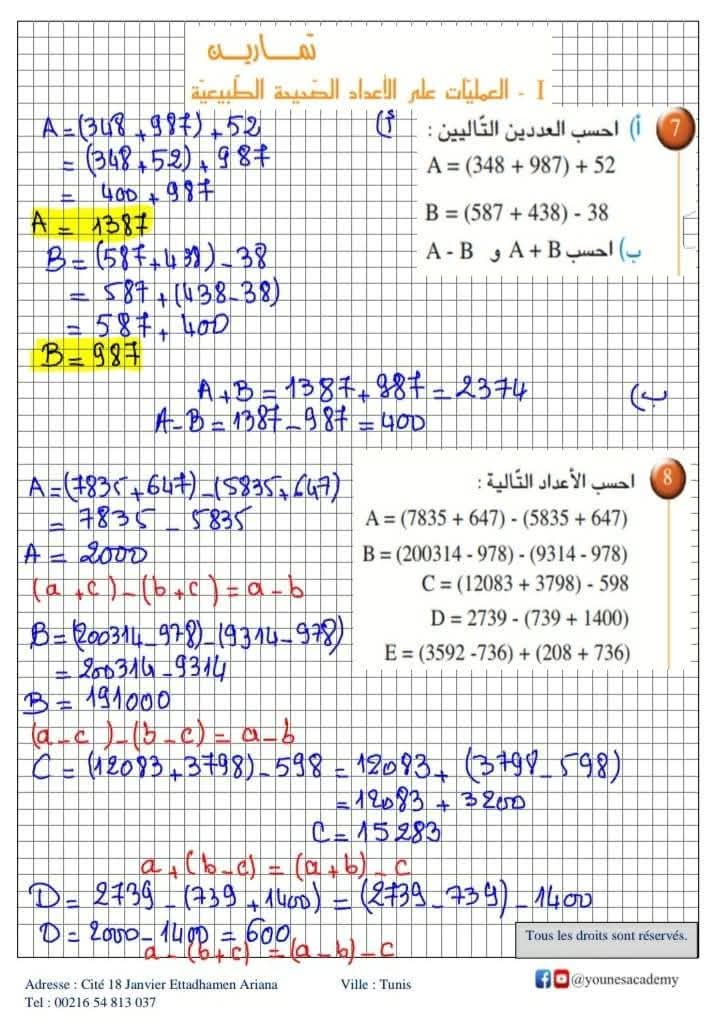 تمارين
I - العمليّات على الأعداد الصّحيحة الطّبيعيّة
7 أ) احسب العددين التّاليين :
A = (348 + 987) + 52
B = (587 + 438) - 38
ب) احسب A + B و A - B
أ)
A = (348 + 987) + 52
= (348 + 52) + 987
= 400 + 987
A = 1387
B = (587 + 438) - 38
= 587 + (438 - 38)
= 587 + 400
B = 987
ب)
A + B = 1387 + 987 = 2374
A - B = 1387 - 987 = 400
8 احسب الأعداد التّالية :
A = (7835 + 647) - (5835 + 647)
B = (200314 - 978) - (9314 - 978)
C = (12083 + 3798) - 598
D = 2739 - (739 + 1400)
E = (3592 -736) + (208 + 736)
A = (7835 + 647) - (5835 + 647)
= 7835 - 5835
A = 2000
(a + c) - (b + c) = a - b
B = (200314 - 978) - (9314 - 978)
= 200314 - 9314
B = 191000
(a - c) - (b - c) = a - b
C = (12083 + 3798) - 598 = 12083 + (3798 - 598)
= 12083 + 3200
C = 15283
a + (b - c) = (a + b) - c
D = 2739 - (739 + 1400) = (2739 - 739) - 1400
D = 2000 - 1400 = 600
a - (b + c) = (a - b) - c
Tous les droits sont réservés.
Adresse : Cité 18 Janvier Ettadhamen Ariana Ville : Tunis
@younesacademy
Tel : 00216 54 813 037